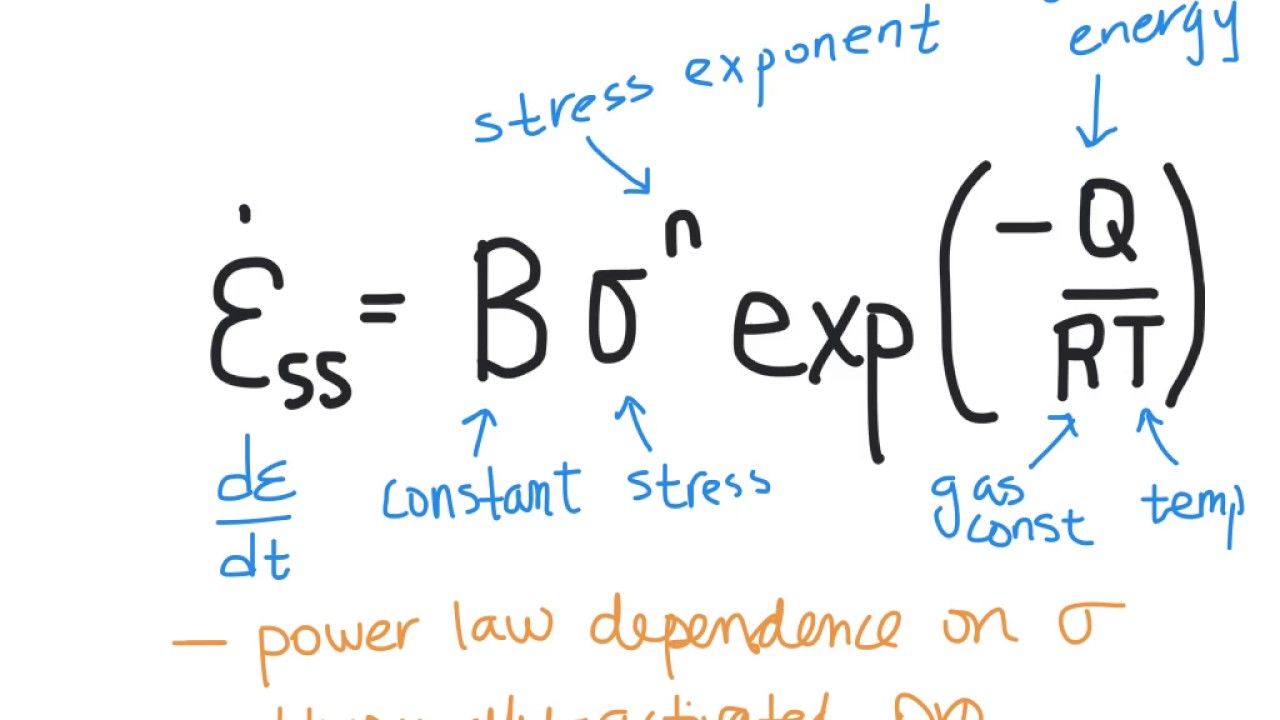 energy
stress exponent
ε̇ss = Bσⁿ exp(-Q/RT)
dε/dt
constant
stress
gas const
temp
— power law dependence on σ